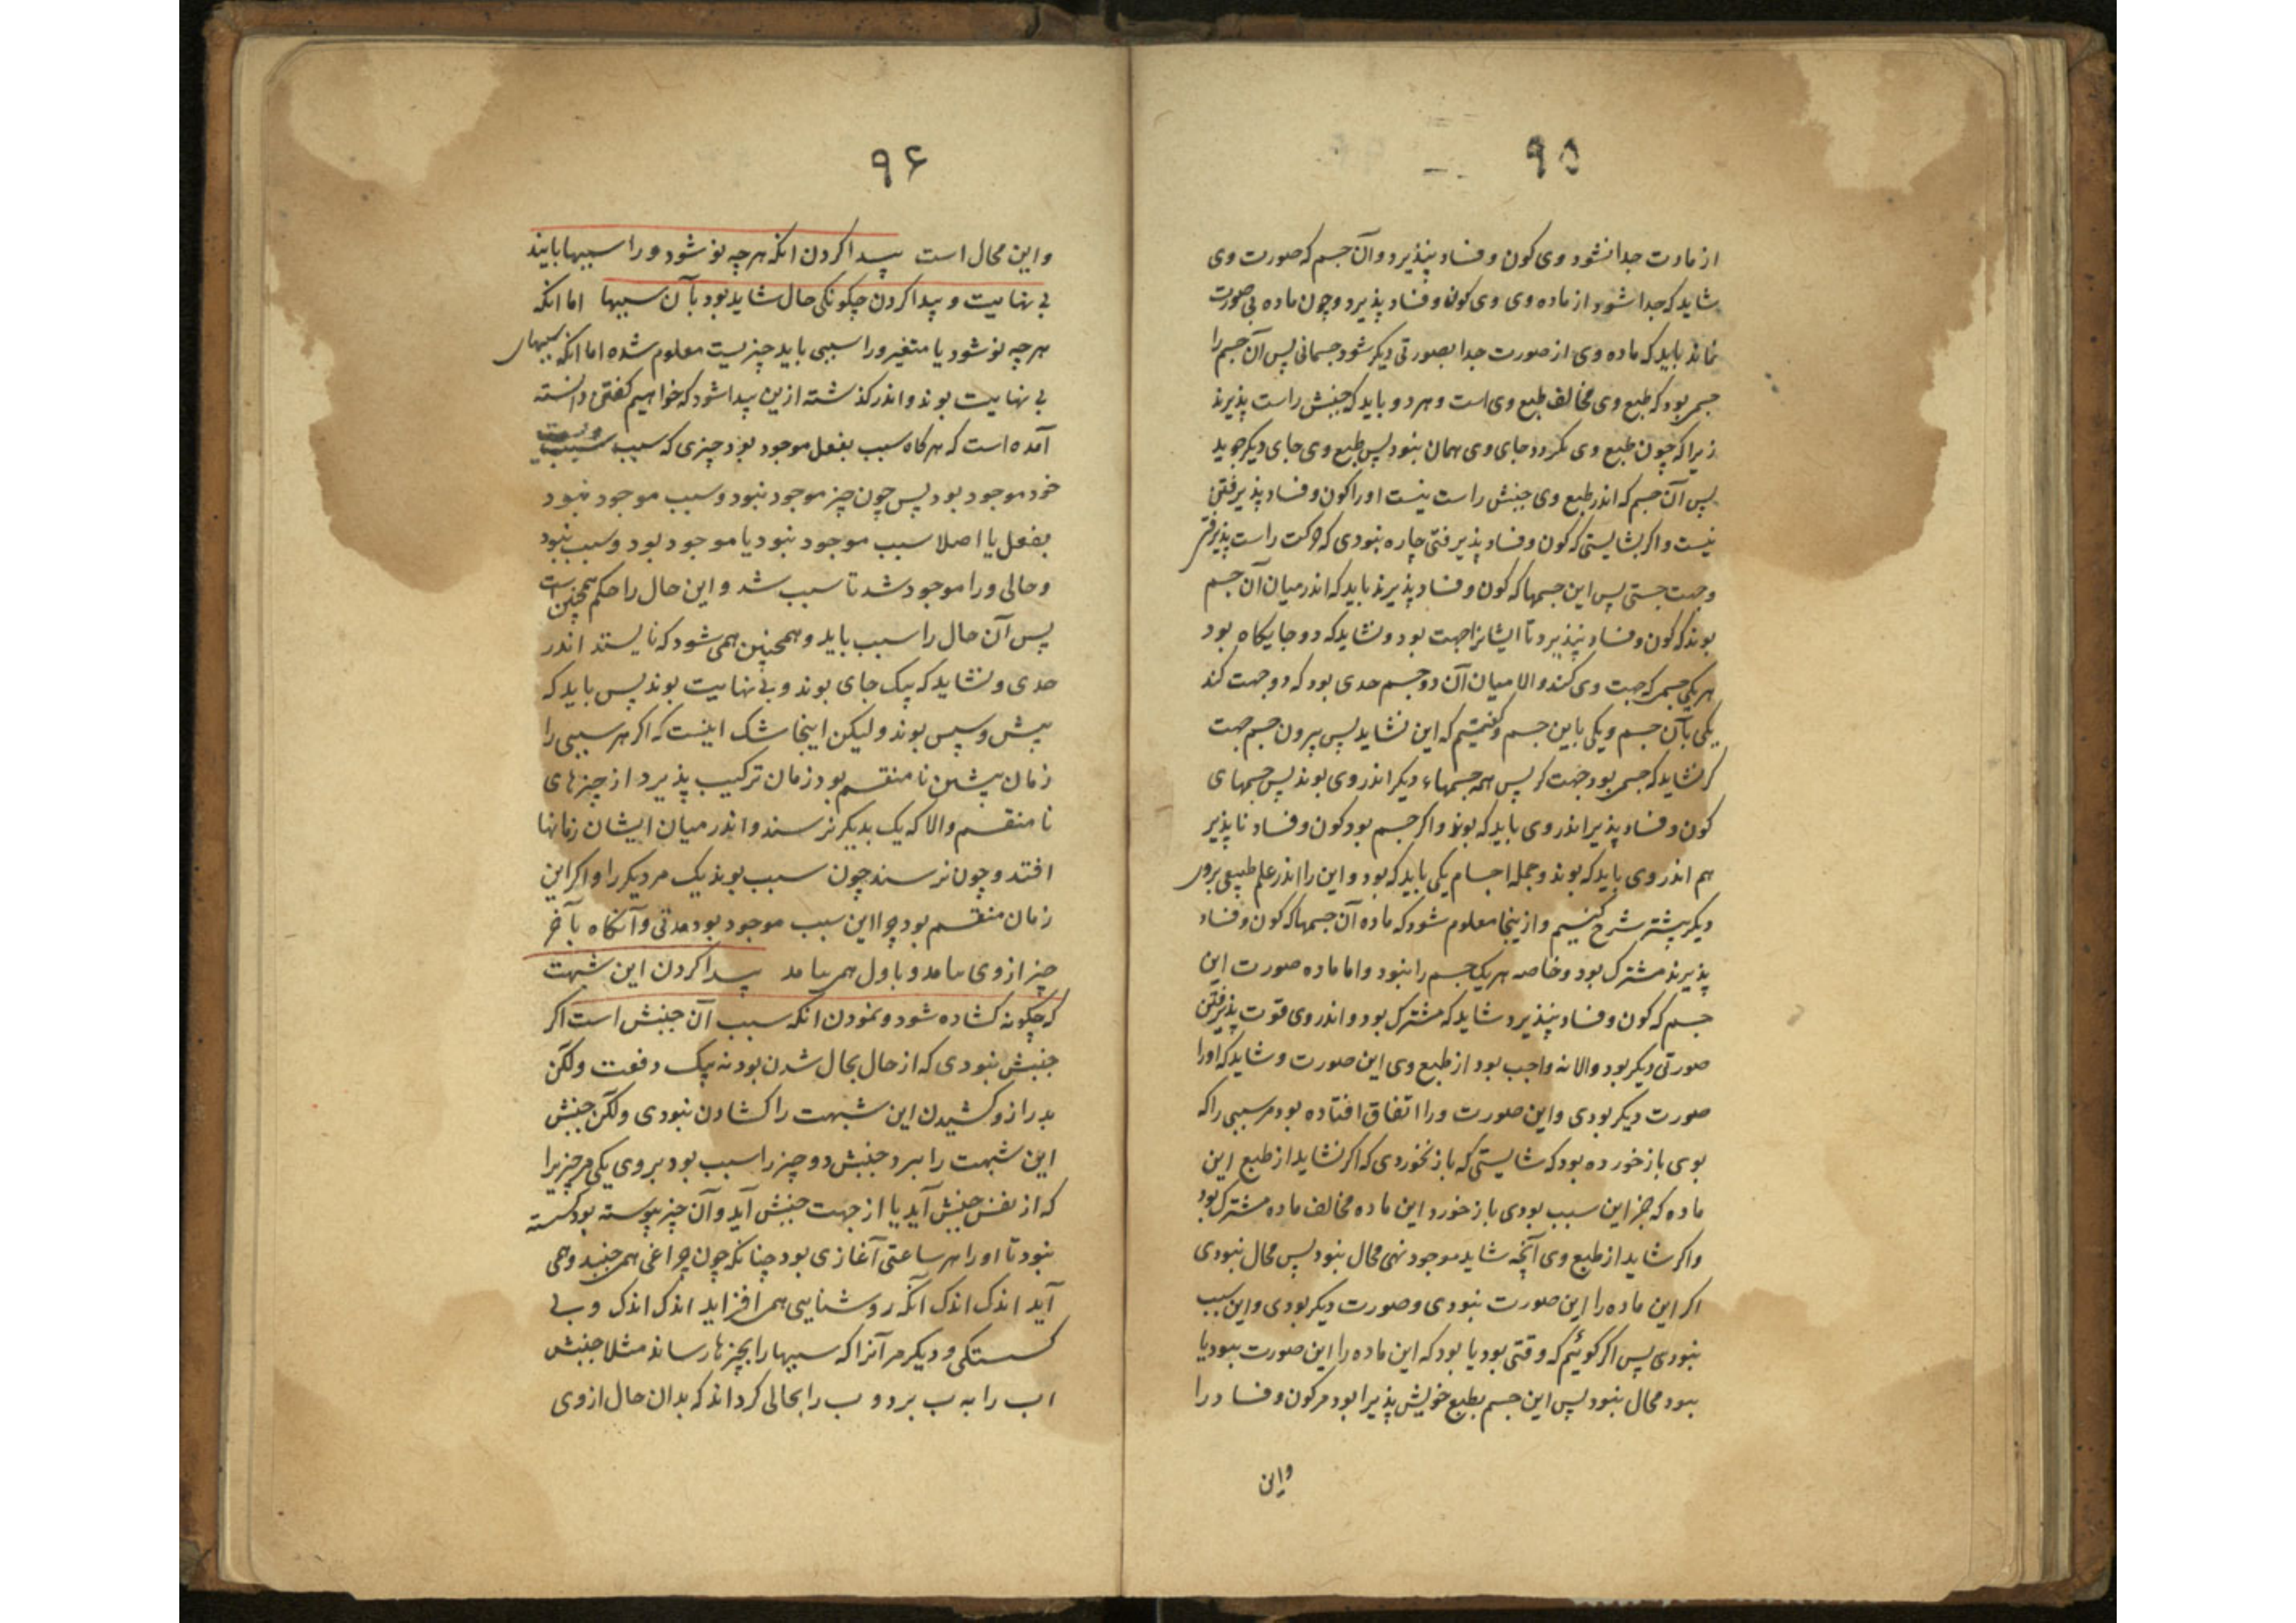 ۹۵
از مادت جدا نشود وی کون و فساد نپذیرد و آن جسم که صورت وی
شاید که جدا شود از ماده وی وی کون و فساد پذیرد و چون ماده بی صورت
نماند باید که ماده وی از صورت جدا بصورتی دیکر شود جسمانی پس آن جسم را
جسمی بود که طبع وی مخالف طبع وی است و هر دو باید که جنبش راست پذیرند
زیرا که چون طبع وی بکردد جای وی همان نبود پس طبع وی جای دیکر جوید
پس آن جسم که اندر طبع وی جنبش راست نیست او را کون و فساد پذیرفتن
نیست و اکر بشایستی که کون و فساد پذیرفتی چاره نبودی که حرکت راست پذیرفتی
و جهت جستی پس این جسمها که کون و فساد پذیرند باید که اندر میان آن جسم
بوند که کون و فساد نپذیرد تا ایشانرا جهت بود و نشاید که دو جایکاه بود
هر یکی جسمی که جهت وی کند والا میان آن دو جسم حدی بود که دو جهت کند
یکی بآن جسم و یکی باین جسم و کفتیم که این نشاید پس بیرون جسم جهت
کر نشاید که جسمی بود جهت کر پس همه جسمهاء دیکر اندر وی بوند پس جسمهای
کون و فساد پذیر اندر وی باید که بوند و اکر جسم بود کون و فساد ناپذیر
هم اندر وی باید که بوند و جمله اجسام یکی باید که بود و این را اندر علم طبیعی بروی
دیکر بیشتر شرح کنیم و ازینجا معلوم شود که ماده آن جسمها که کون و فساد
پذیرند مشترک بود و خاصه هر یک جسم را نبود و اما ماده صورت این
جسم که کون و فساد نپذیرد شاید که مشترک بود و اندر وی قوت پذیرفتن
صورتی دیکر بود والا نه واجب بود از طبع وی این صورت و شاید که او را
صورت دیکر بودی و این صورت ورا اتفاق افتاده بود مر سببی را که
بوی باز خورده بود که شایستی که باز نخوردی که اکر نشاید از طبع این
ماده که جز این سبب بودی باز خورد این ماده مخالف ماده مشترک بود
و اکر شاید از طبع وی آنچه شاید موجود نهی محال نبود پس محال نبودی
اکر این ماده را این صورت نبودی و صورت دیکر بودی و این سبب
نبودی پس اکر کوئیم که وقتی بود یا بود که این ماده را این صورت نبود یا
نبود محال نبود پس این جسم بطبع خویش پذیرا بود مر کون و فساد را
واین
۹۶
و این محال است پیدا کردن انکه هر چه نو شود ورا سببها بایند
بی نهایت و پیدا کردن چکونکی حال شاید بود بآن سببها اما انکه
هر چه نو شود یا متغیر ورا سببی باید چیزیست معلوم شده اما انکه سببهای
بی نهایت بوند و اندر کذشته ازین پیدا شود که خواهیم کفتن دانسته
آمده است که هر کاه سبب بفعل موجود بود چیزی که سبب ویست
خود موجود بود پس چون چیز موجود نبود و سبب موجود نبود
بفعل یا اصلا سبب موجود نبود یا موجود بود و سبب نبود
و حالی ورا موجود شد تا سبب شد و این حال را حکم همچنین است
پس آن حال را سبب باید و همچنین همی شود که نایستد اندر
حدی و نشاید که بیک جای بوند و بی نهایت بوند پس باید که
پیش و سپس بوند و لیکن اینجا شک اینست که اکر هر سببی را
زمان پیشین نا منقسم بود زمان ترکیب پذیرد از چیزهای
نا منقسم والا که یک بدیکر نرسند و اندر میان ایشان زمانها
افتد و چون نرسند چون سبب بوند یک مر دیکر را و اکر این
زمان منقسم بود چرا این سبب موجود بود مدتی و آنکاه بآخر
چیز از وی بیامد و باول همی نیامد پیدا کردن این شبهت
که چکونه کشاده شود و نمودن انکه سبب آن جنبش است اکر
جنبش نبودی که از حال بحال شدن بود نه بیک دفعت ولکن
بدراز و کشیدن این شبهت را کشادن نبودی ولکن جنبش
این شبهت را ببرد جنبش دو چیز را سبب بود بروی یکی مر چیزیرا
که از نفس جنبش آید یا از جهت جنبش آید و آن چیز پیوسته بود کسسته
نبود تا او را هر ساعتی آغازی بود چنانکه چون چراغی همی جنبد و همی
آید اندک اندک آنکه روشنایی همی افزاید اندک اندک و بی
کسستکی و دیکر مر آنرا که سببها را بچیزها رساند مثلا جنبش
ا ب را به ب برد و ب را بحالی کرداند که بدان حال از وی